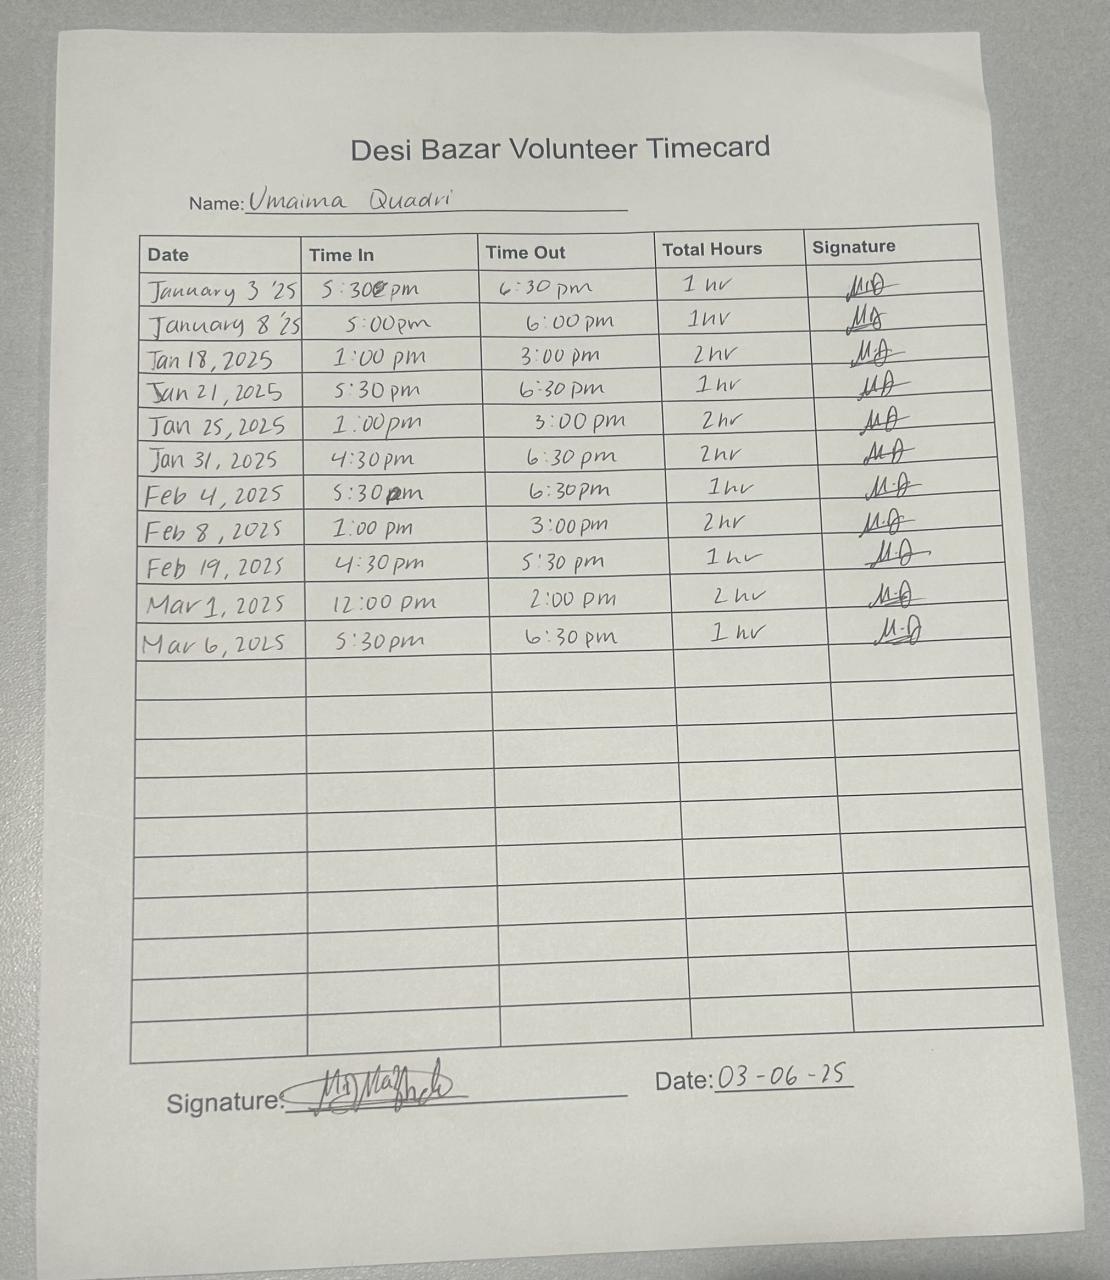 Desi Bazar Volunteer Timecard
Name: Umaima Quadri
Date Time In Time Out Total Hours Signature
January 3 '25 5:30 pm 6:30 pm 1 hr
January 8 '25 5:00pm 6:00 pm 1hr
Jan 18, 2025 1:00 pm 3:00 pm 2hr
Jan 21, 2025 5:30 pm 6:30 pm 1 hr
Jan 25, 2025 1:00pm 3:00 pm 2hr
Jan 31, 2025 4:30pm 6:30 pm 2hr
Feb 4, 2025 5:30pm 6:30pm 1hr
Feb 8, 2025 1:00 pm 3:00pm 2hr
Feb 19, 2025 4:30pm 5:30 pm 1 hr
Mar 1, 2025 12:00 pm 2:00 pm 2 hr
Mar 6, 2025 5:30pm 6:30 pm 1 hr
Signature: Date: 03-06-25